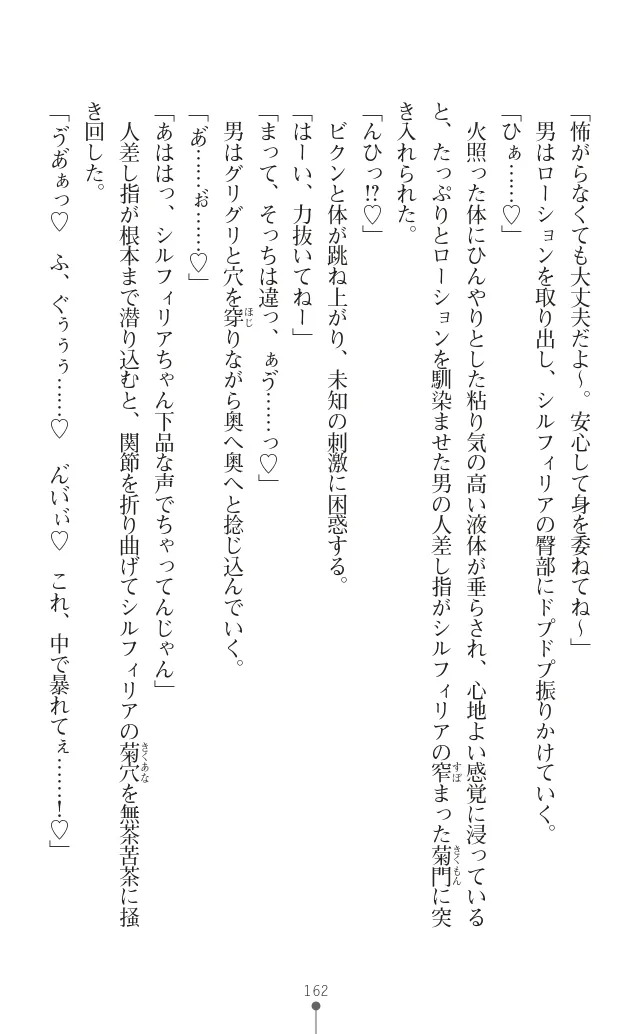 「怖がらなくても大丈夫だよ〜。安心して身を委ねてね〜」
男はローションを取り出し、シルフィリアの臀部にドプドプ振りかけていく。
「ひぁ……♡」
火照った体にひんやりとした粘り気の高い液体が垂らされ、心地よい感覚に浸っている
と、たっぷりとローションを馴染ませた男の人差し指がシルフィリアの窄(すぼ)まった菊門(きくもん)に突
き入れられた。
「んひっ!?♡」
ビクンと体が跳ね上がり、未知の刺激に困惑する。
「はーい、力抜いてねー」
「まって、そっちは違っ、ぁゔ……っ♡」
男はグリグリと穴を穿(ほじ)りながら奥へ奥へと捻じ込んでいく。
「あ゙……ぉ゙……♡」
「あははっ、シルフィリアちゃん下品な声でちゃってんじゃん」
人差し指が根本まで潜り込むと、関節を折り曲げてシルフィリアの菊穴(きくあな)を無茶苦茶に掻
き回した。
「ゔあ゙ぁっ♡　ふ、ぐぅぅぅ……♡　ん゙い゙ぃ♡　これ、中で暴れてぇ……！♡」
162